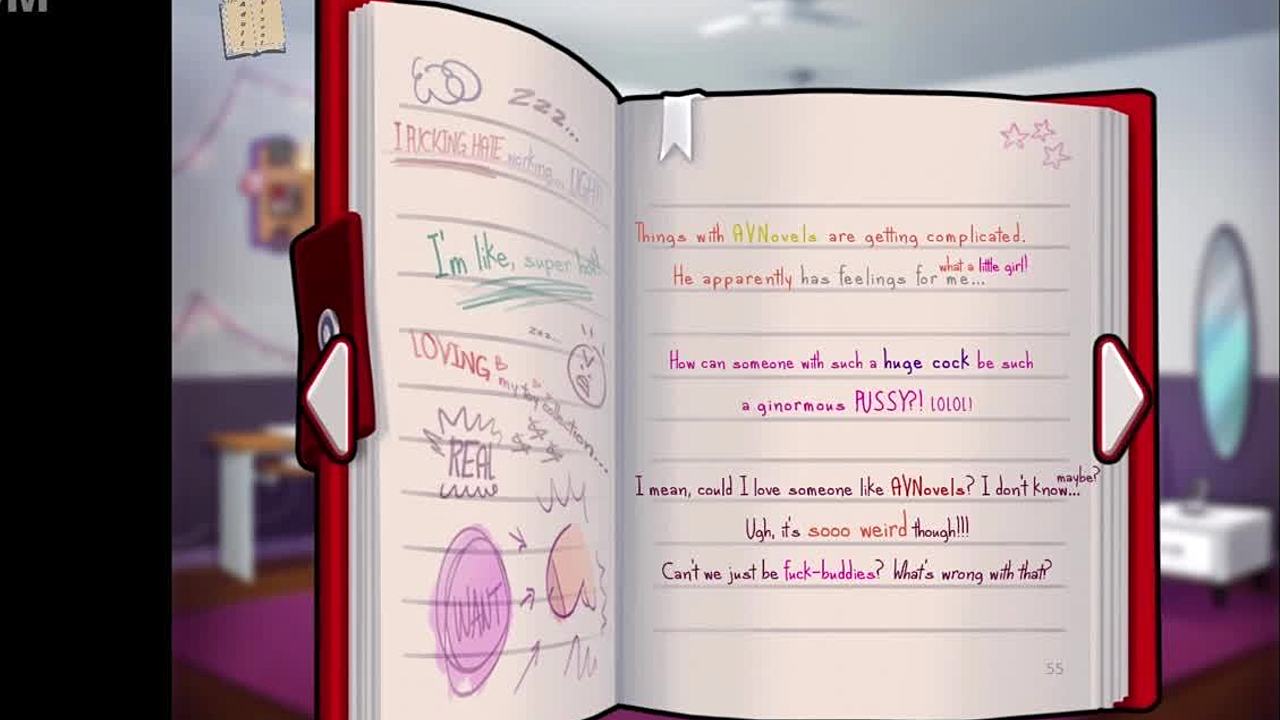 zzz...
I FUCKING HATE working... UGH!!
I'm like, super hot!
LOVING my toy collection...
zzz...
REAL
WANT
Things with AVNovels are getting complicated.
what a little girl!
He apparently has feelings for me...
How can someone with such a huge cock be such
a ginormous PUSSY?! LOLOL!
maybe?
I mean, could I love someone like AVNovels? I don't know...
Ugh, it's sooo weird though!!!
Can't we just be fuck-buddies? What's wrong with that?
55